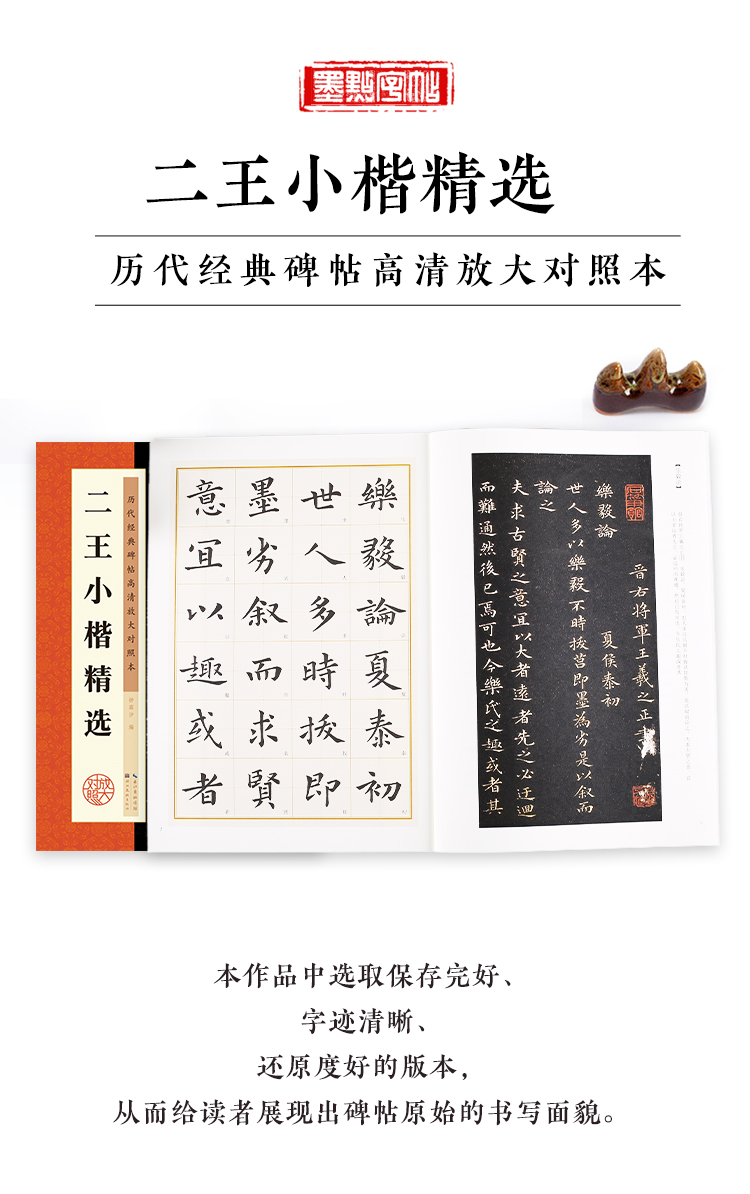 墨點字帖
二王小楷精选
历代经典碑帖高清放大对照本
二王小楷精选
历代经典碑帖高清放大对照本
放大对照
樂毅論夏泰初
世人多時拔即
墨劣叙而求賢
意冝以趣或者
晋右将軍王羲之正書
樂毅論
夏侯泰初
世人多以樂毅不時拔莒即墨為劣是以叙而
論之
夫求古賢之意冝以大者遠者先之必迂迴
而難通然後已焉可也今樂氏之趣或者其
本作品中选取保存完好、
字迹清晰、
还原度好的版本，
从而给读者展现出碑帖原始的书写面貌。